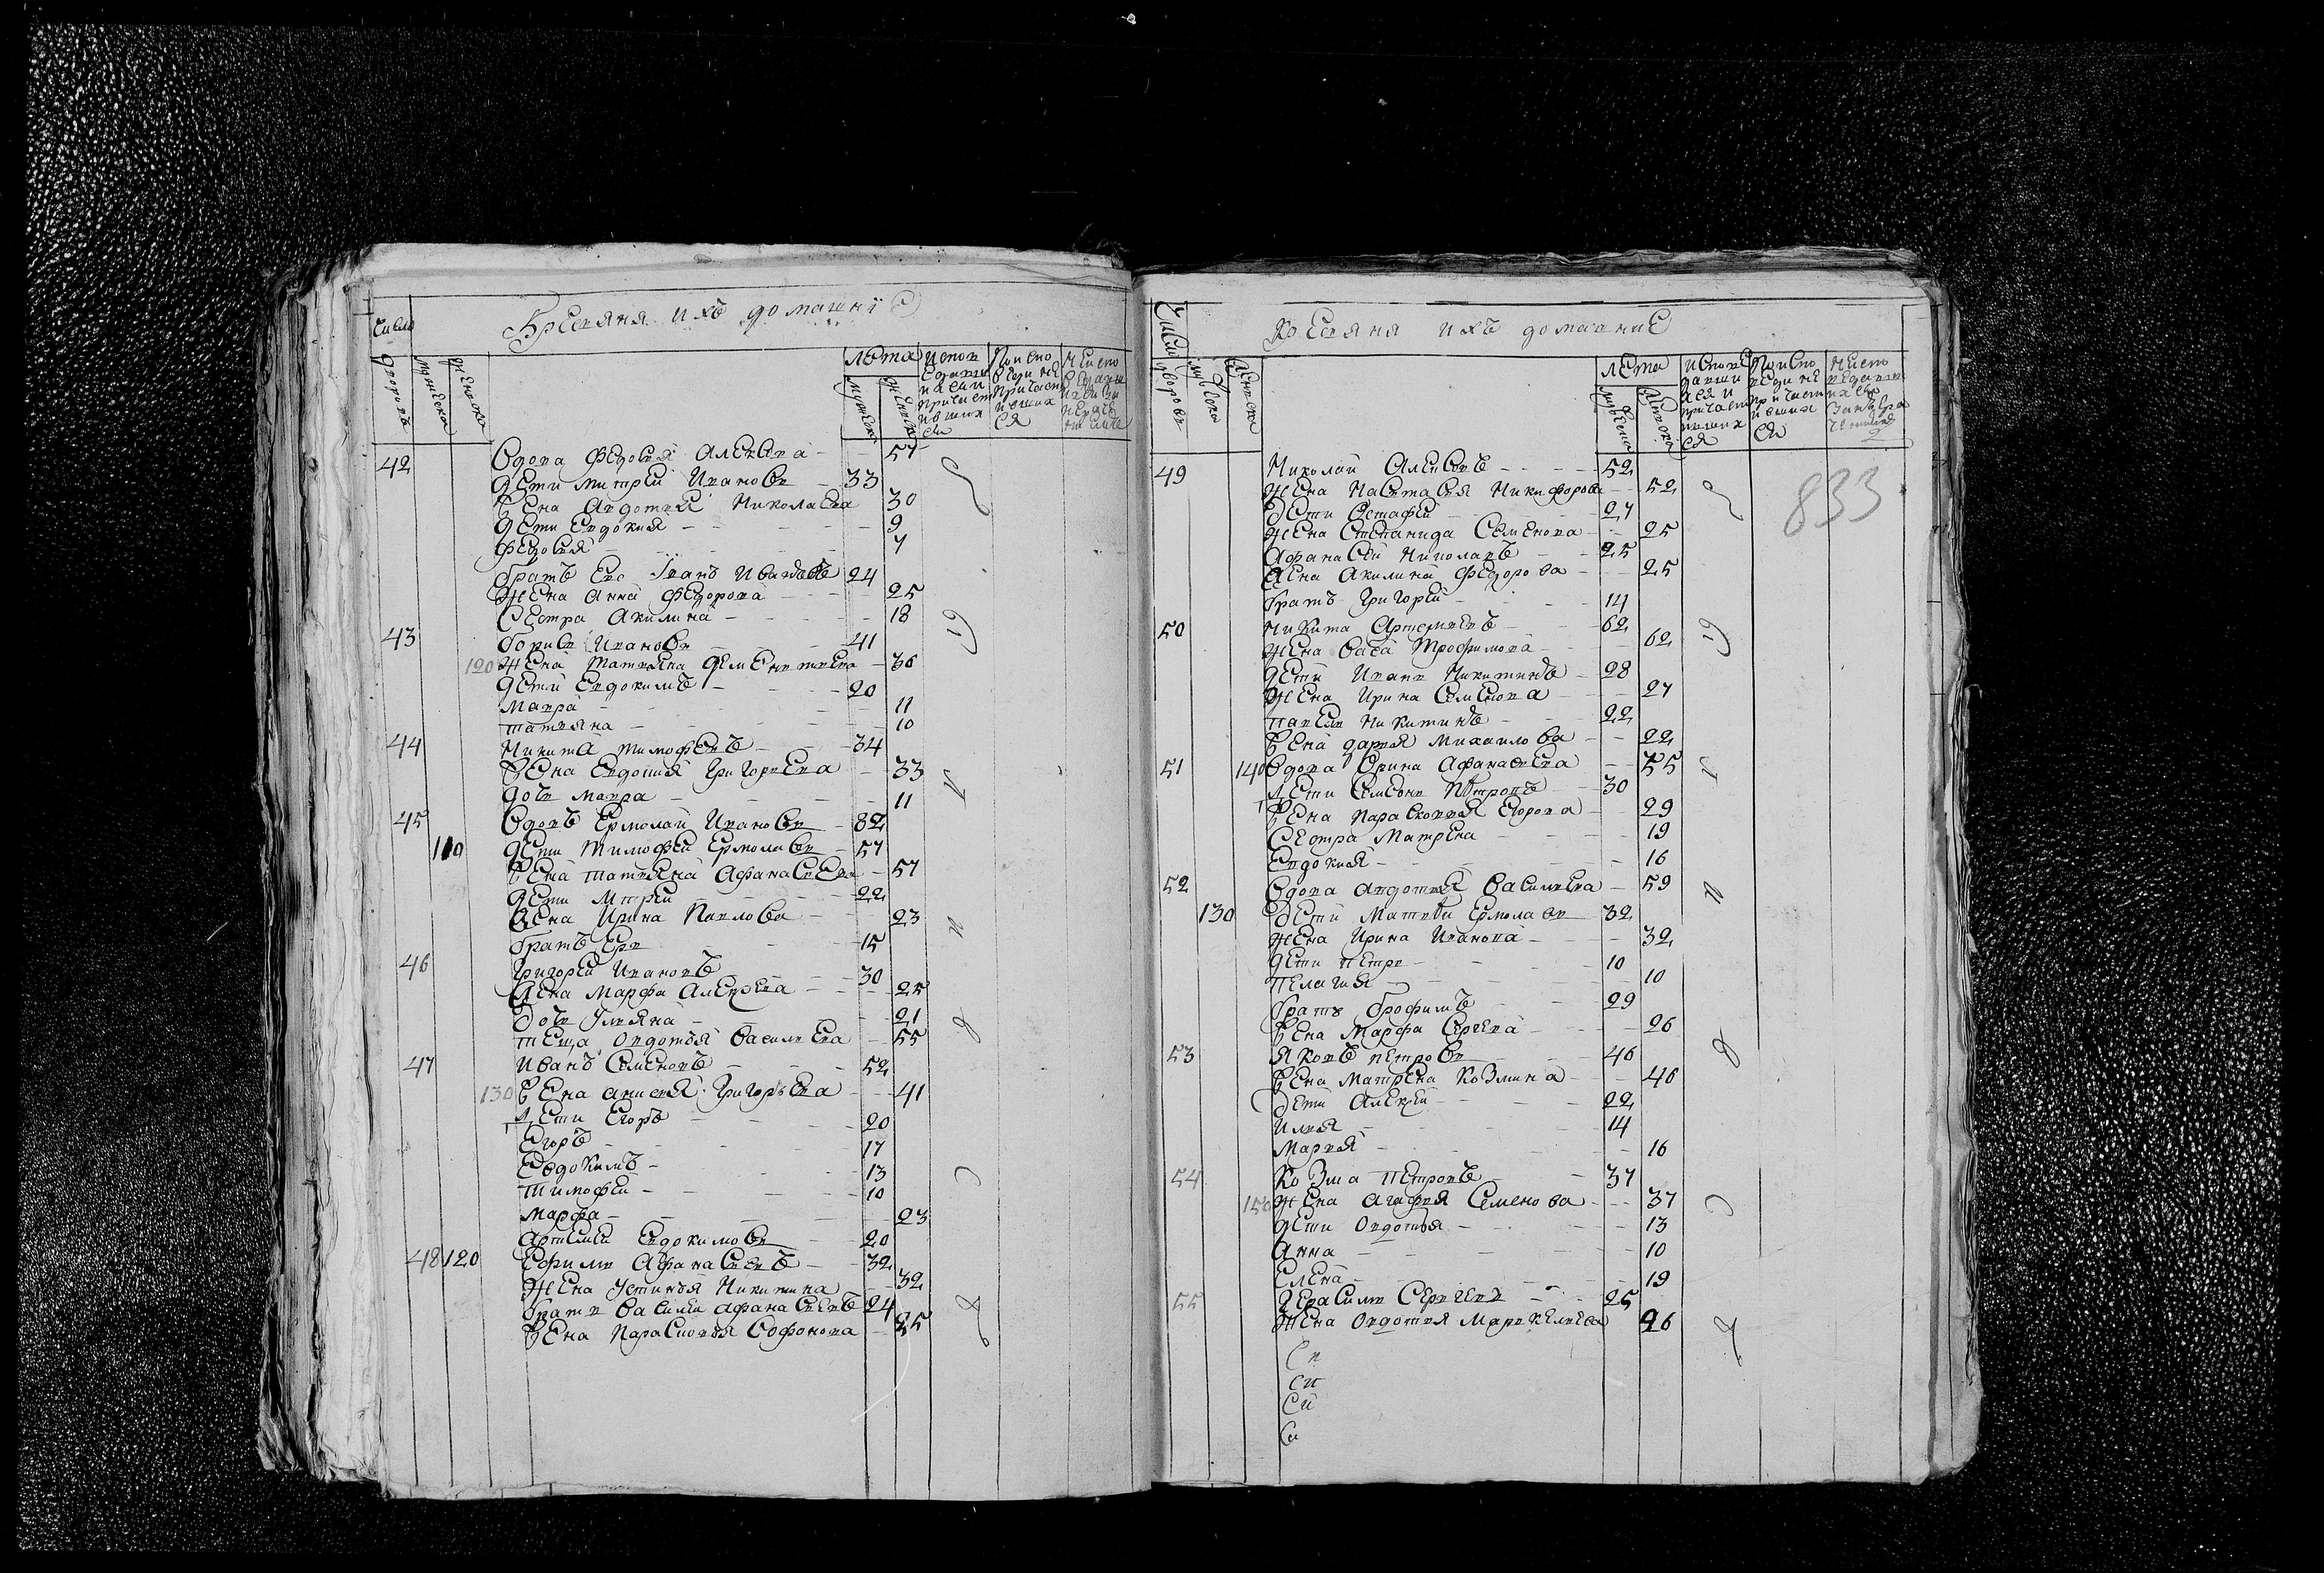 Число
Крестьяня ихъ домашніе
дворовъ
мужеска
женска
Лѣта
мужеска
женска
42 Вдова Федосья Алексѣева - 57
дети Митрей Ивановъ - 33
Жена Авдотья Николаева 30
дети Евдокия - - - 9
Федосья - - - 7
братъ Ево Іванъ Ивановъ 24
Жена Анна Федорова - - 25
Сестра Акилина - - - 18
43 Борисъ Ивановъ - - 41
120 Жена Татьяна Дементиева - 36
Дети Евдокимъ - - - 20
Мавра - - - 11
татьяна - - - 10
44 Никита тимофеевъ - - 34
Жена Евдотия Григорьева - 33
дочь Мавра - - - 11
45 Вдовъ Ермолай Ивановъ - 82
110 дети Тимофей Ермолаевъ - 57
Жена татьяна Афанасьева - 57
дети Митрей - - - 22
Жена Ирина Павлова - - 23
братъ Егръ - - - 15
46 Григорей Ивановъ - - 30
Жена Марфа Алексѣева - - 25
Дочь Ульяна - - - 21
теща Овдотья Васильева - 55
47 Иванъ Семеновъ - - 52
130 Жена анисья Григорьева - - 41
Дети Егоръ - - - 20
Егоръ - - - 17
Евдокимъ - - - 13
Тимофей - - - 10
Марфа - - - 23
Артемей Евдокимовъ - - 20
48 120 Ефимъ Афанасьевъ - - 32
Жена Устинья Никитина - 32
братъ Василей афанасьевъ 24
Жена Парасковья Софонова - 25
Число
Крестьяня ихъ домашние
дворовъ
мужеска
женска
Лѣта
мужеска
женска
833
49 Николай Алексѣевъ - - - 52
Жена Настасья Никифорова - - 52
Дети Остафей - - - 27
Жена Степанида Семенова - - 25
Афанасей Николаевъ - - 25
Жена Акилина Федорова - - 25
братъ Григорей - - - 14
50 Никита Артемьевъ - - 62
Жена Васа Трофимова - - 62
дети Иванъ Никитинъ - 28
Жена Ирина Семенова - - 27
павелъ Никитинъ - - 22
Жена дарья Михаилова - - 22
51 140 Вдова Орина Афанасьева - - 55
Дети Семенъ Петровъ - 30
Жена Парасковья Егорова - - 29
Сестра Матрена - - 19
Евдокия - - - 16
52 Вдова авдотья Васильева - 59
130 Дети Матвей Ермолаевъ 32
Жена Ирина Иванова - - 32
дети петръ - - 10
пелагия - - - 10
братъ Трофимъ - - 29
Жена Марфа Сергеева - - 26
53 Яковъ петровъ - - 46
Жена Матрена Козмина - - 46
Дети Алексѣй - - - 22
Илья - - - 14
Марья - - - 16
54 Козма Петровъ - - 37
150 Жена Агафья Семенова - - 37
дети Овдотья - - - 13
Анна - - - 10
Елена - - - 19
55 Герасимъ Сергеевъ - - 25
Жена Овдотья Маркелиева 26